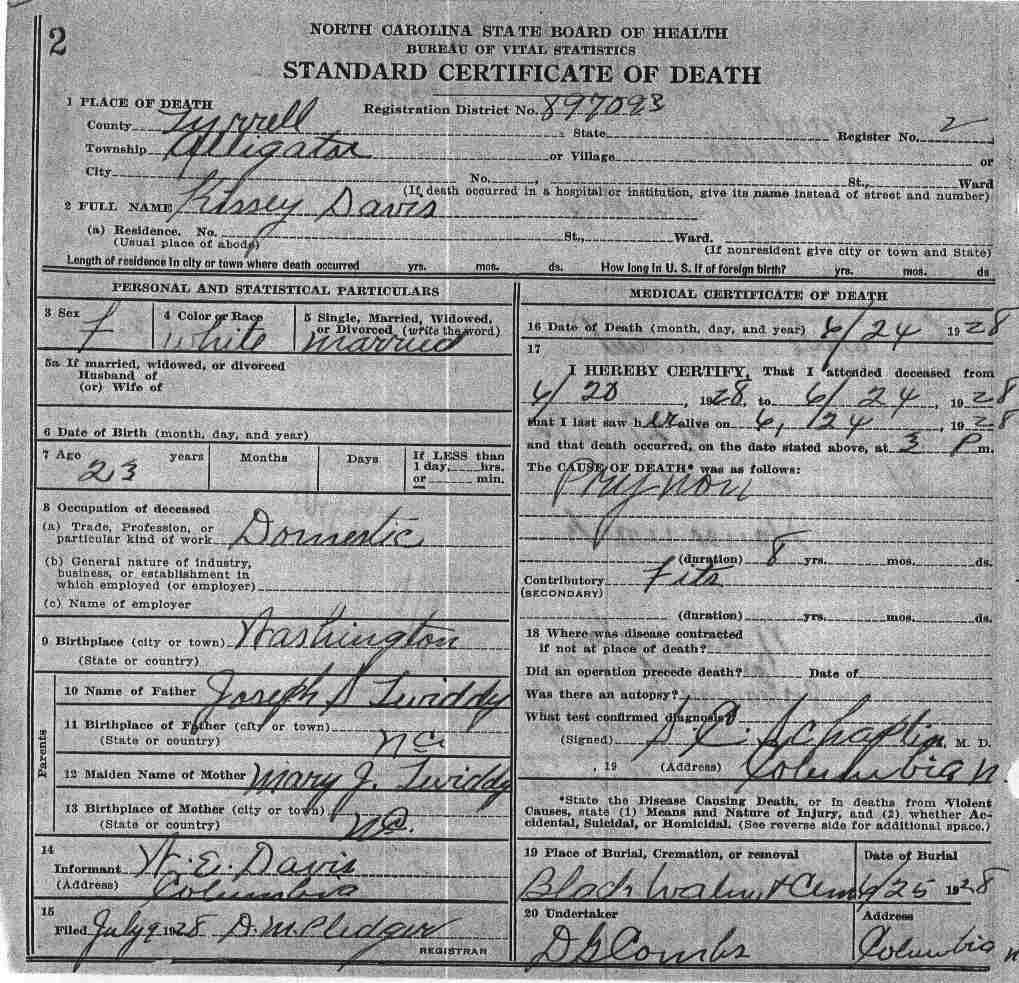 2
NORTH CAROLINA STATE BOARD OF HEALTH
BUREAU OF VITAL STATISTICS
STANDARD CERTIFICATE OF DEATH
1 PLACE OF DEATH
Registration District No. 897093
County Tyrrell State Register No. 2
Township Alligator or Village or
City No. , St., Ward
(If death occurred in a hospital or institution, give its name instead of street and number)
2 FULL NAME Kissey Davis
(a) Residence. No. St., Ward.
(Usual place of abode) (If nonresident give city or town and State)
Length of residence in city or town where death occurred yrs. mos. ds. How long in U. S. if of foreign birth? yrs. mos. ds
PERSONAL AND STATISTICAL PARTICULARS
3 Sex 4 Color or Race 5 Single, Married, Widowed,
or Divorced (write the word)
f white married
5a If married, widowed, or divorced
Husband of
(or) Wife of
6 Date of Birth (month, day, and year)
7 Age years Months Days If LESS than
1 day, hrs.
or min.
23
8 Occupation of deceased
(a) Trade, Profession, or
particular kind of work Domestic
(b) General nature of industry,
business, or establishment in
which employed (or employer)
(c) Name of employer
9 Birthplace (city or town) Washington
(State or country)
Parents
10 Name of Father Joseph S Twiddy
11 Birthplace of Father (city or town)
(State or country) NC
12 Maiden Name of Mother Mary J. Twiddy
13 Birthplace of Mother (city or town)
(State or country) NC.
14
Informant W. E. Davis
(Address) Columbia
15
Filed July 9 1928 D. M. Pledger
REGISTRAR
MEDICAL CERTIFICATE OF DEATH
16 Date of Death (month, day, and year) 6/24 1928
17
I HEREBY CERTIFY, That I attended deceased from
6/20, 1928, to 6/24, 1928
that I last saw her alive on 6, 24, 1928
and that death occurred, on the date stated above, at 3 P m.
The CAUSE OF DEATH* was as follows:
(duration) 8 yrs. mos. ds.
Contributory Fits
(SECONDARY)
(duration) yrs. mos. ds.
18 Where was disease contracted
if not at place of death?
Did an operation precede death? Date of
Was there an autopsy?
What test confirmed diagnosis?
(Signed) S. C. Chaplin, M. D.
, 19 (Address) Columbia N.
*State the Disease Causing Death, or in deaths from Violent
Causes, state (1) Means and Nature of Injury, and (2) whether Ac-
cidental, Suicidal, or Homicidal. (See reverse side for additional space.)
19 Place of Burial, Cremation, or removal Date of Burial
Black Walnut Cem 6/25 1928
20 Undertaker Address
D G Combs Columbia N